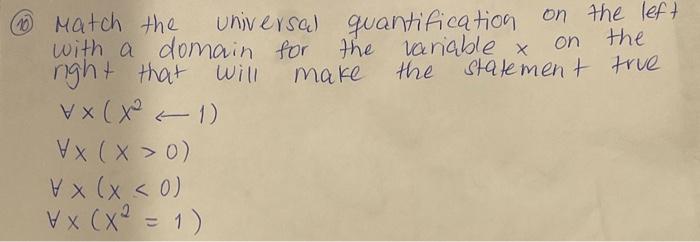 ⑩ Match the universal quantification on the left
with a domain for the variable x on the
right that will make the statement true
∀x(x² ← 1)
∀x(x > 0)
∀x(x < 0)
∀x(x² = 1)